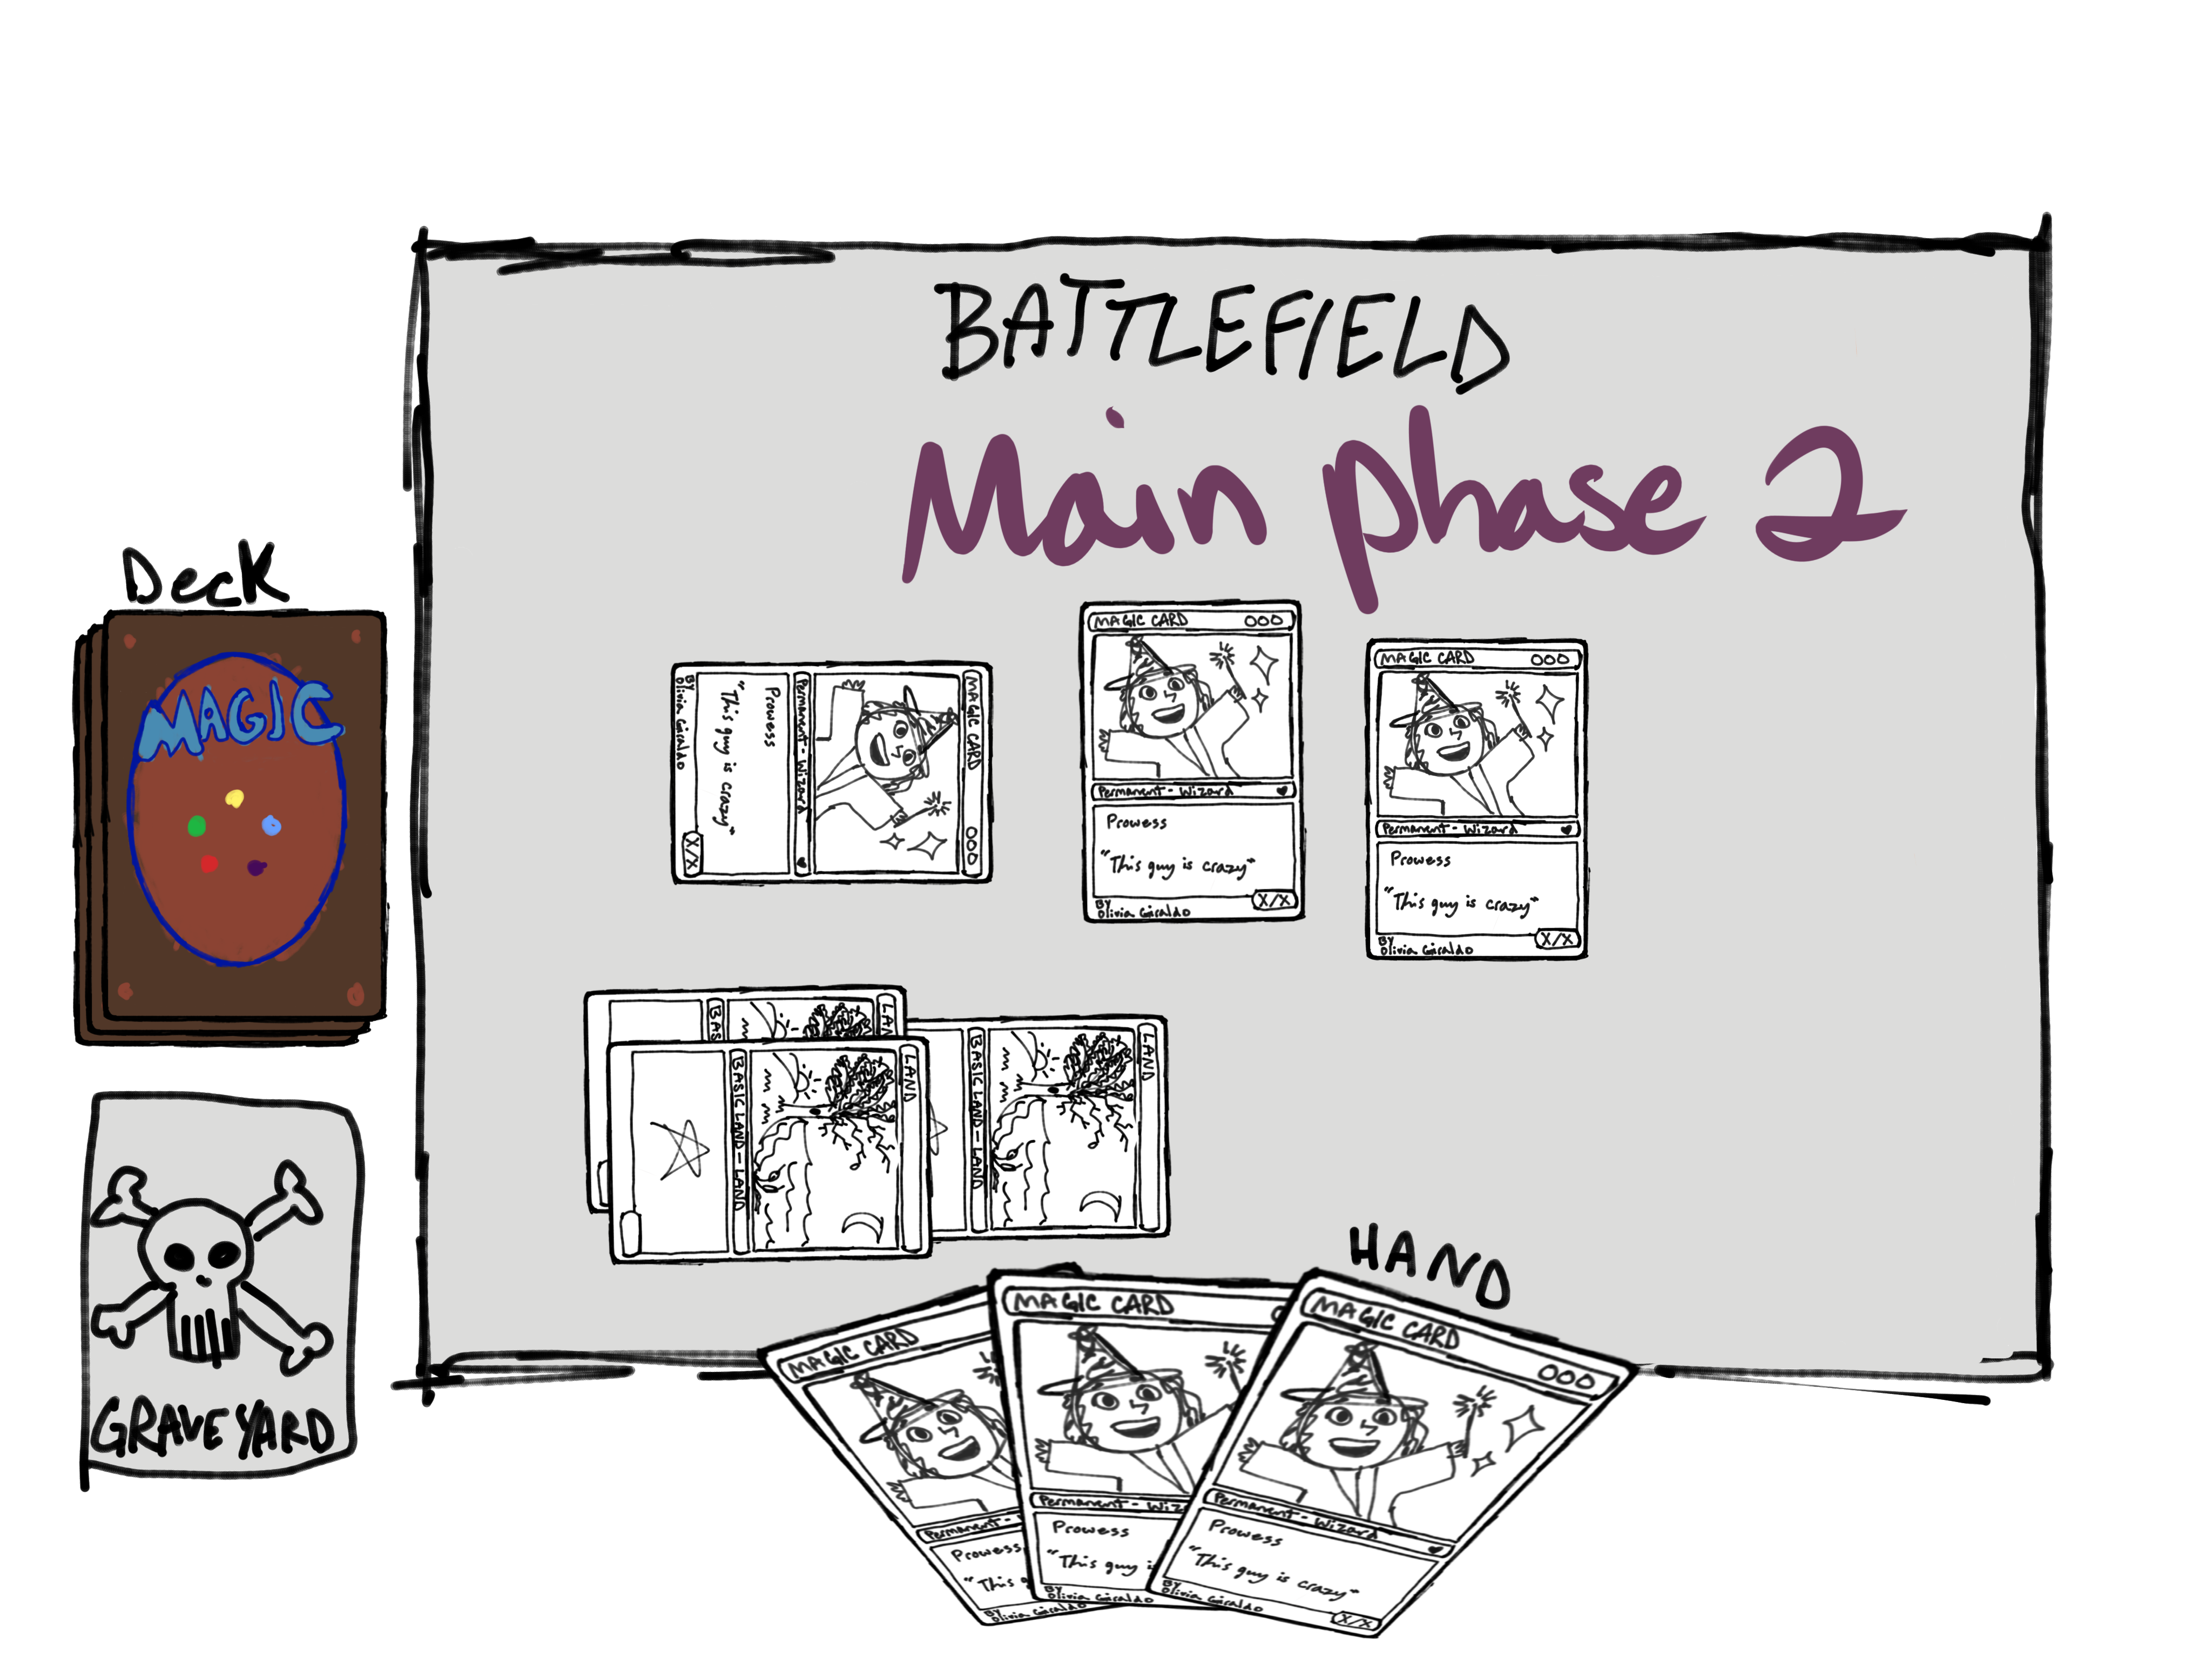 BATTLEFIELD
Main phase 2
Deck
MAGIC
GRAVEYARD
MAGIC CARD 000
Permanent - Wizard
Prowess
"This guy is crazy"
BY
Olivia Giraldo
X/X
MAGIC CARD 000
Permanent - Wizard
Prowess
"This guy is crazy"
X/X
BY
Olivia Giraldo
MAGIC CARD 000
Permanent - Wizard
Prowess
"This guy is crazy"
X/X
BY
Olivia Giraldo
LAN
BAS
LAND
BASIC LAND - LAND
LAND
BASIC LAND - LAND
HAND
MAGIC CARD
Permanent -
Prowess
"This g
BY
Olivia Giraldo
MAGIC CARD
Permanent - Wiz
Prowess
"This guy i
BY
Olivia Giraldo
MAGIC CARD 000
Permanent - Wizard
Prowess
"This guy is crazy"
BY
Olivia Giraldo
X/X